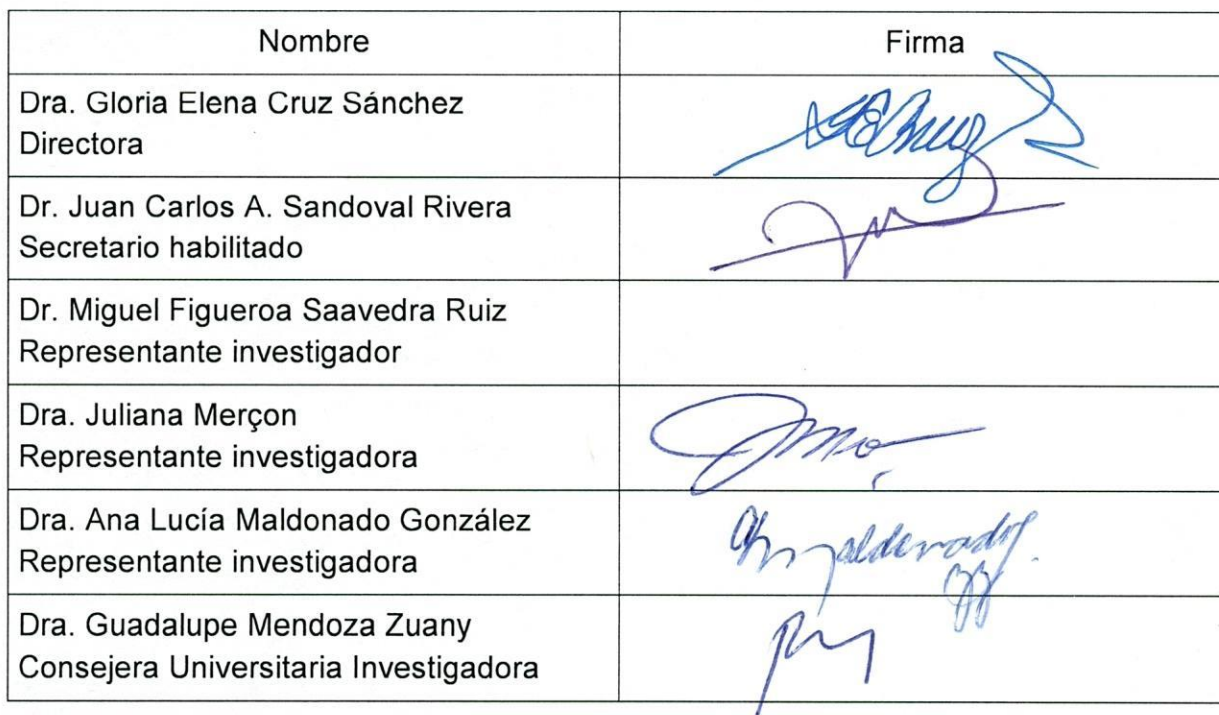 Nombre Firma
Dra. Gloria Elena Cruz Sánchez
Directora
Dr. Juan Carlos A. Sandoval Rivera
Secretario habilitado
Dr. Miguel Figueroa Saavedra Ruiz
Representante investigador
Dra. Juliana Merçon
Representante investigadora
Dra. Ana Lucía Maldonado González
Representante investigadora
Dra. Guadalupe Mendoza Zuany
Consejera Universitaria Investigadora